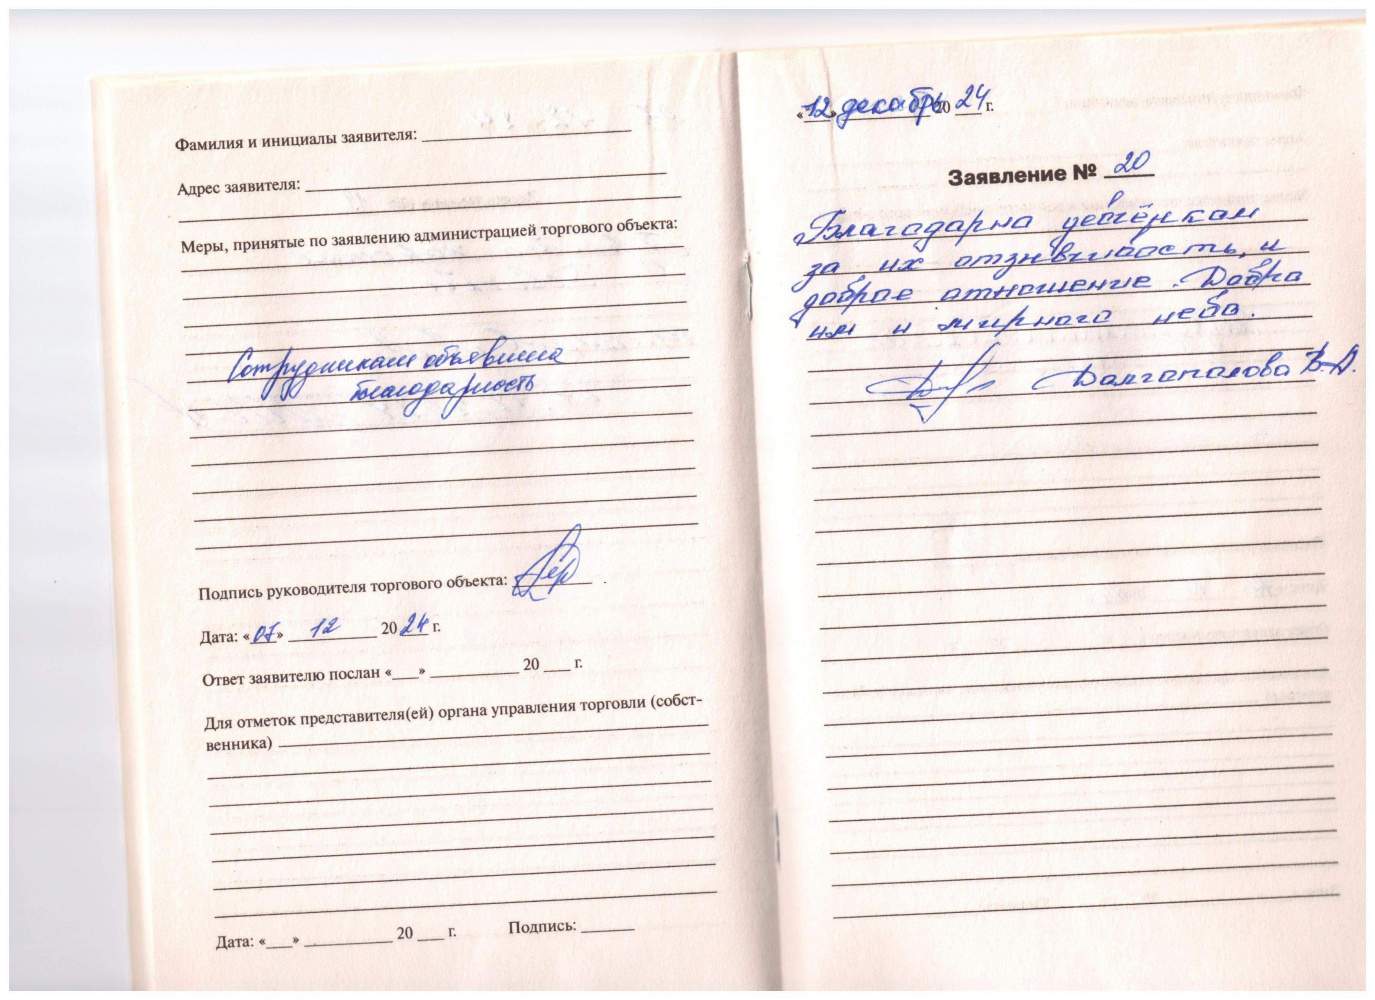 Фамилия и инициалы заявителя:
Адрес заявителя:
Меры, принятые по заявлению администрацией торгового объекта:
Сотрудникам объявлена
благодарность
Подпись руководителя торгового объекта:
Дата: «07» 12 2024 г.
Ответ заявителю послан «___» ______ 20 ___ г.
Для отметок представителя(ей) органа управления торговли (собст-
венника)
Дата: «___» ______ 20 ___ г. Подпись: ______
«12» декабрь 2024 г.
Заявление № 20
Благодарна девчёнкам
за их отзывчивость, и
доброе отношение. Добра
им и мирного неба.
Долгополова В.А.